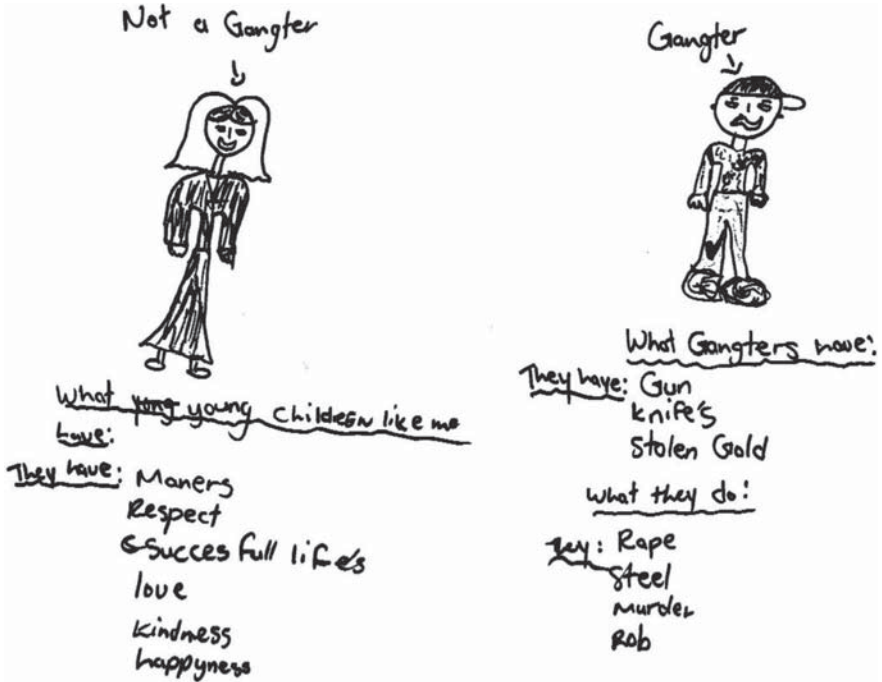 Not a Gangter
What young young Children like me
have:
They have: Maners
Respect
Succes full life's
love
kindness
happyness
Gangter
What Gangters have:
They have: Gun
knife's
Stolen Gold
what they do:
They: Rape
Steel
Murder
Rob